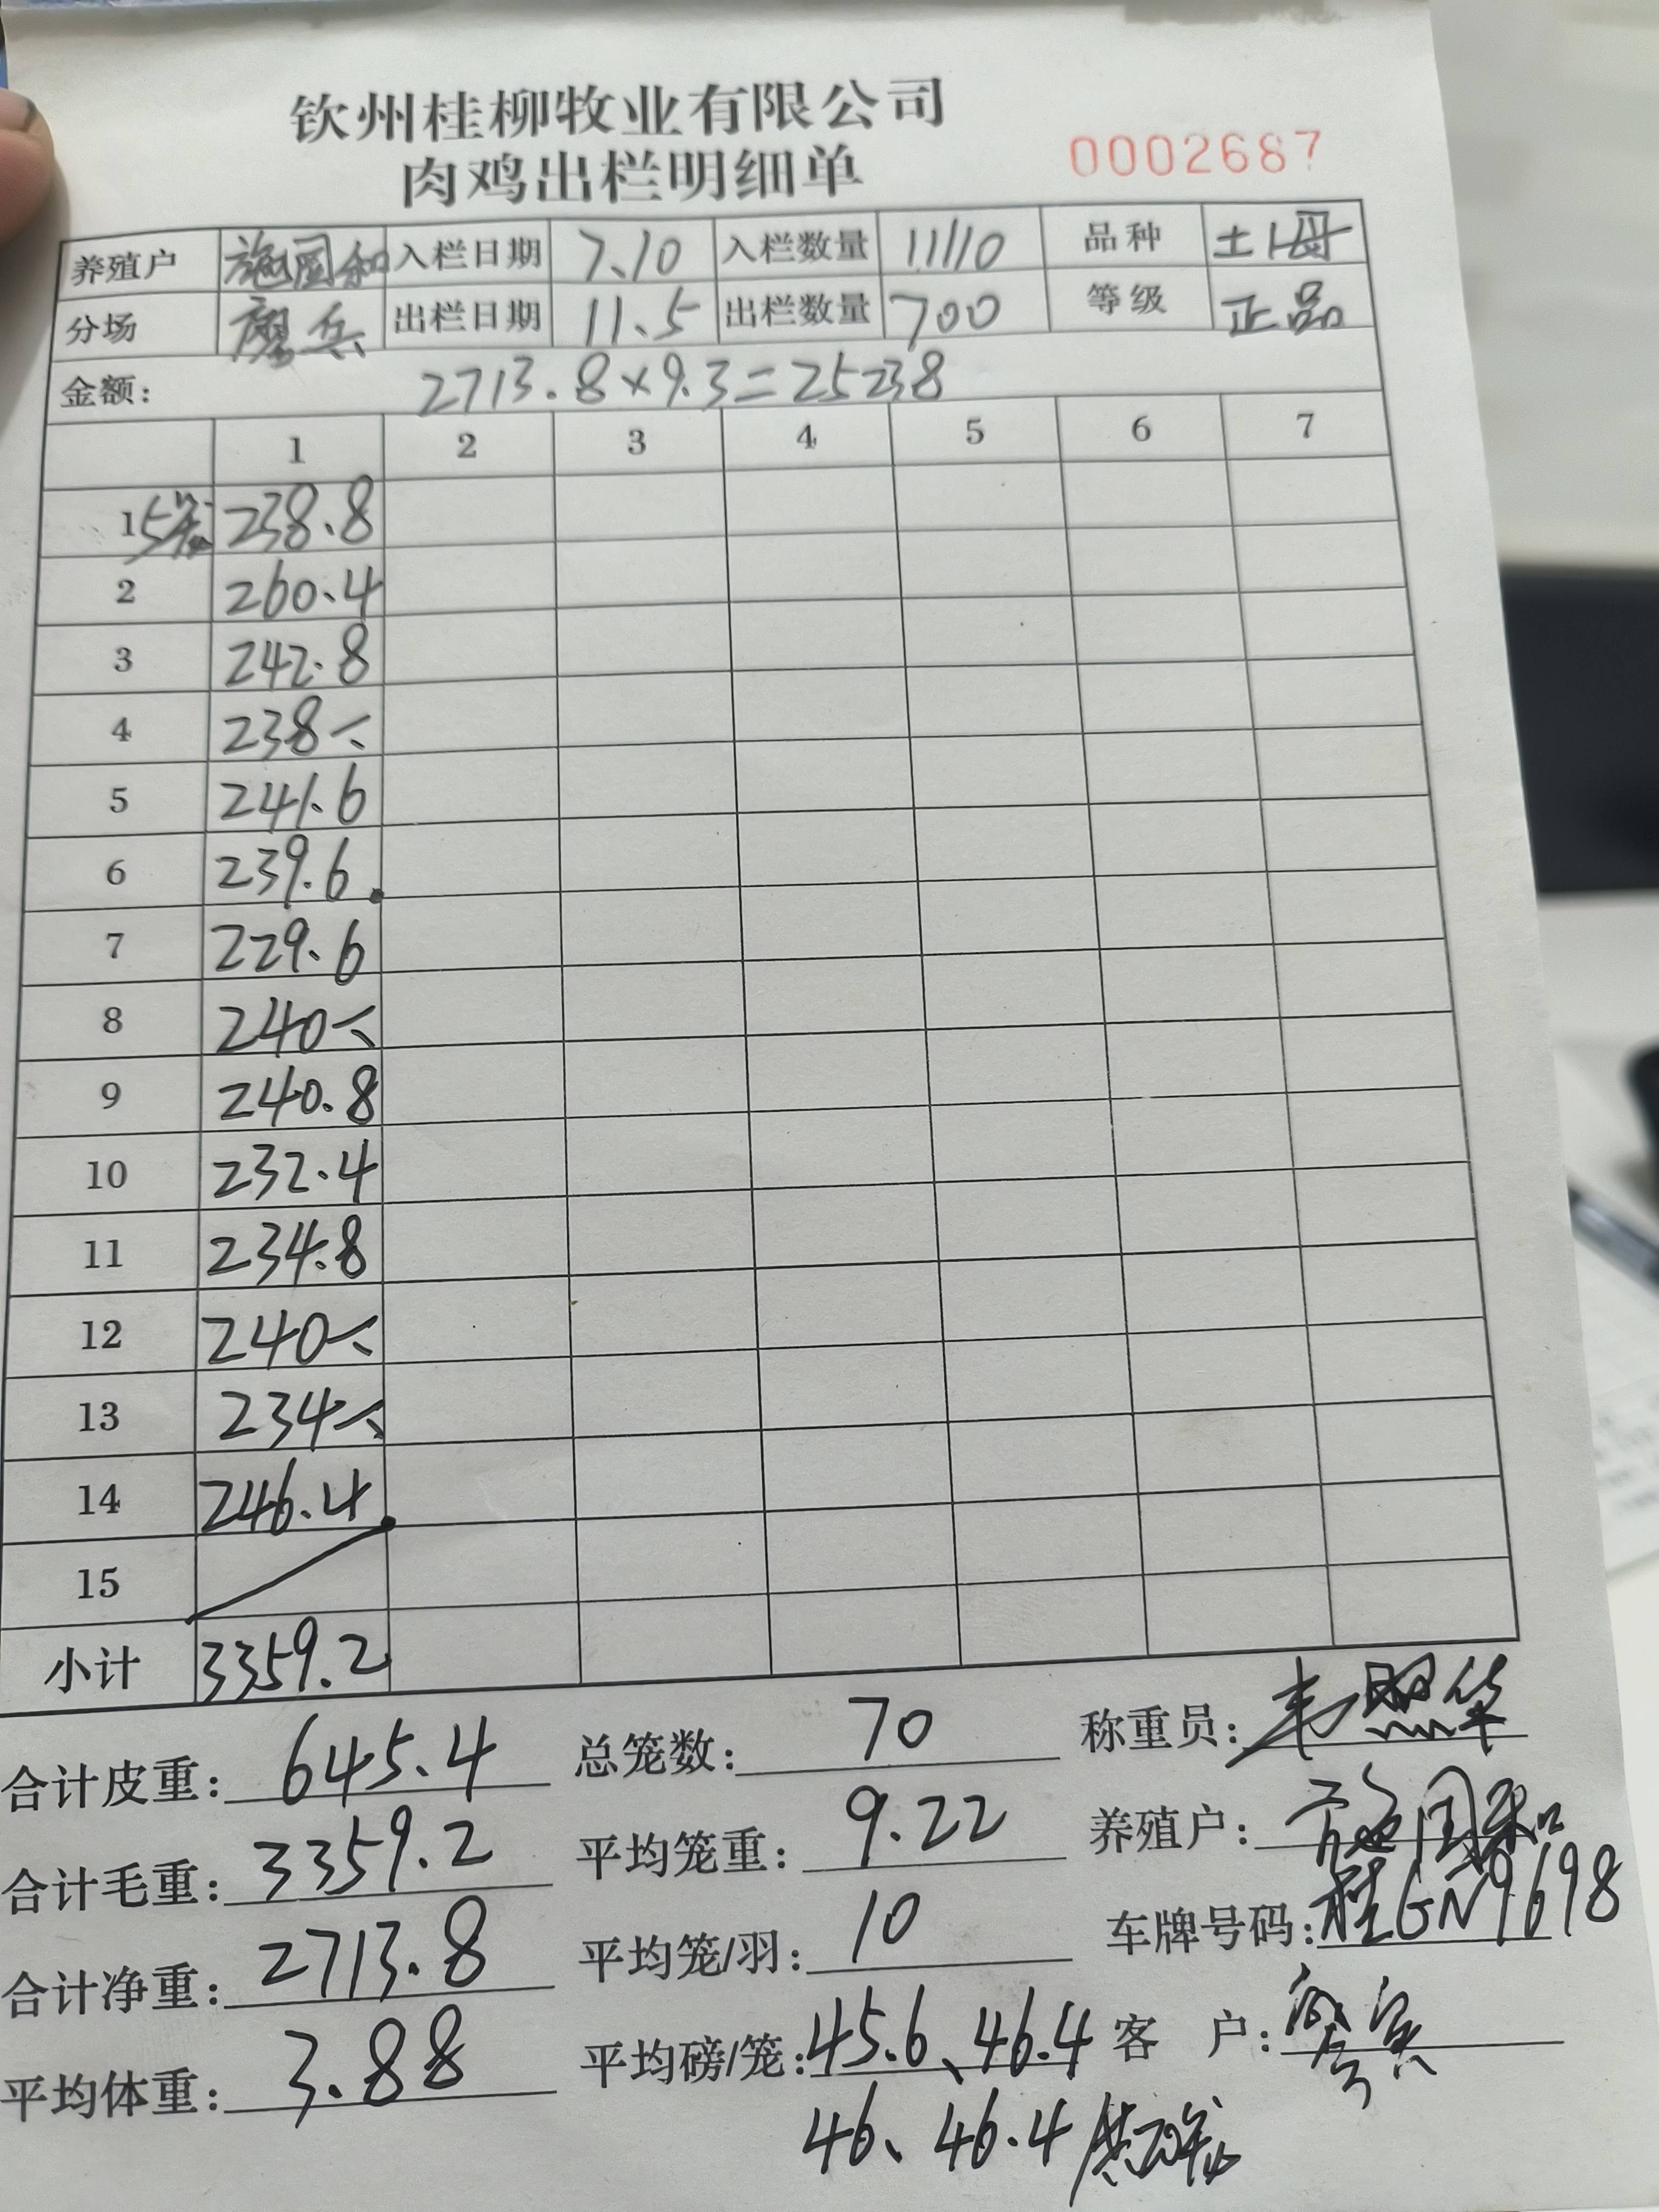 钦州桂柳牧业有限公司
肉鸡出栏明细单
0002687
养殖户 施国和 入栏日期 7.10 入栏数量 11110 品种 土1母
分场 廖兵 出栏日期 11.5 出栏数量 700 等级 正品
金额: 2713.8×9.3=25238
1 2 3 4 5 6 7
1 5笼 238.8
2 260.4
3 242.8
4 238
5 241.6
6 239.6
7 229.6
8 240
9 240.8
10 232.4
11 234.8
12 240
13 234
14 246.4
15
小计 3359.2
合计皮重: 645.4 总笼数: 70 称重员: 韦照华
合计毛重: 3359.2 平均笼重: 9.22 养殖户: 施国和
合计净重: 2713.8 平均笼/羽: 10 车牌号码: 桂GN9698
平均体重: 3.88 平均磅/笼: 45.6、46.4 客 户:
46、46.4